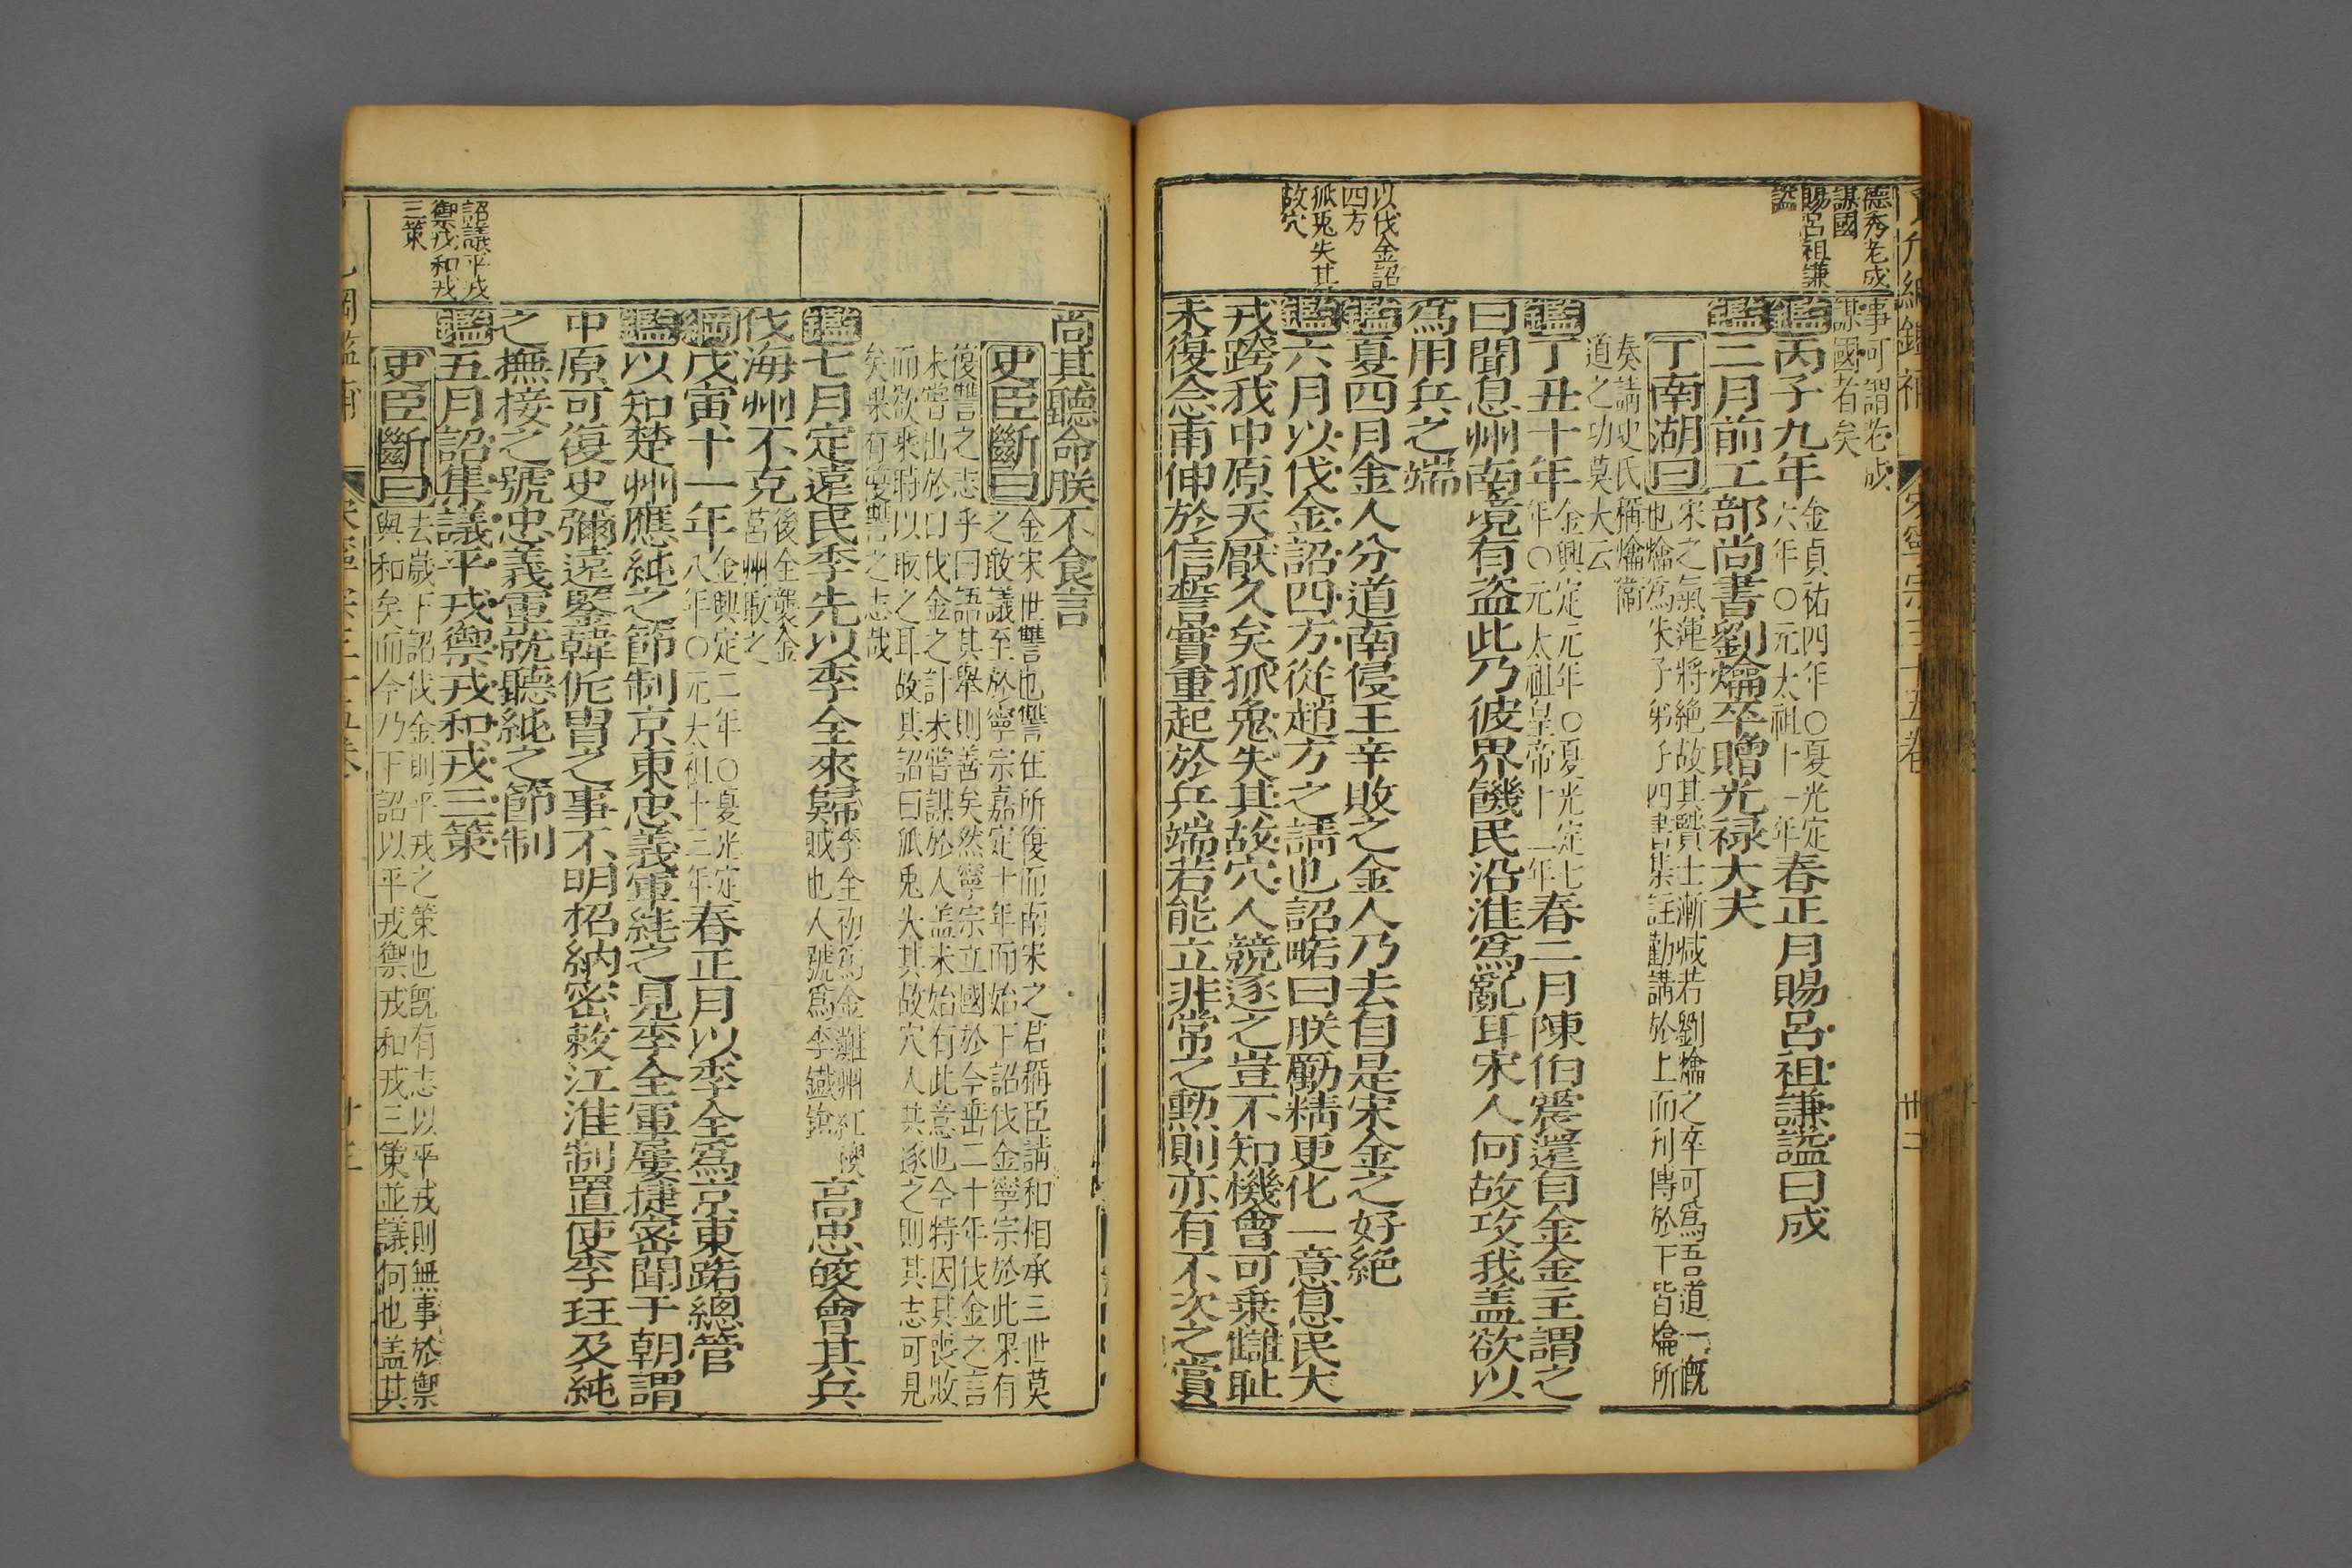 德秀老成
謀國
賜呂祖謙
謚
以伐金詔
四方
狐兎失其
故穴
事可謂老成
謀國者矣
鑑丙子九年金貞祐四年○夏光定
六年○元太祖十一年春正月賜呂祖謙謚曰成
鑑三月前工部尚書劉爚卒贈光祿大夫
丁南湖曰宋之氣運將絕故其賢士漸减若劉爚之卒可爲吾道一慨
也爚爲朱子弟子四書集註勸講於上而刋傳於下皆爚所
奏請史氏稱爚衛
道之功莫大云
鑑丁丑十年金興定元年○夏光定七
年○元太祖皇帝十二年春二月陳伯震還自金金主謂之
曰聞息州南境有盗此乃彼界饑民沿淮爲亂耳宋人何故攻我盖欲以
爲用兵之端
鑑夏四月金人分道南侵王辛敗之金人乃去自是宋金之好絕
鑑六月以伐金詔四方從趙方之請也詔畧曰朕勵精更化一意息民犬
戎跨我中原天厭久矣狐兔失其故穴人競逐之豈不知機會可乗讎耻
未復念甫伸於信誓實重起於兵端若能立非常之勲則亦有不次之賞
尚其聽命朕不食言
史臣斷曰金宋世讐也讐仕所復而南宋之君稱臣請和相承三世莫
之敢議至於寧宗嘉定十年而始下詔伐金寧宗於此果有
復讐之志乎曰語其舉則善矣然寧宗立國於今垂二十年伐金之言
未嘗出於口伐金之計未嘗謀於人盖未始有此意也今特因其喪敗
而欲乗時以取之耳故其詔曰狐兎失其故穴人共逐之則其志可見
矣果有復讐之志哉
鑑七月定遠民季先以李全來歸李全初爲金濰州紅襖
賊也人號爲李鐵鎗高忠皎會其兵
伐海州不克後全襲金
莒州取之
綱戊寅十一年金興定二年○夏光定
八年○元太祖十三年春正月以李全爲京東路總管
鑑以知楚州應純之節制京東忠義軍純之見李全軍屢捷密聞于朝謂
中原可復史彌遠鑒韓侂冑之事不明招納密敕江淮制置使李珏及純
之撫接之號忠義軍就聽純之節制
鑑五月詔集議平戎禦戎和戎三策
史臣斷曰去歲下詔伐金則平戎之策也旣有志以平戎則無事於禦
與和矣而今乃下詔以平戎禦戎和戎三策並議何也盖其
詔議平戎
禦戎和戎
三策